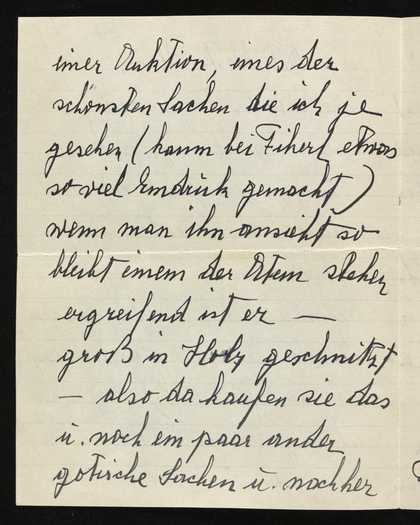 einer Auktion, eines der
schönsten Sachen die ich je
gesehen (kaum bei Fihert etwas
so viel Eindruck gemacht)
wenn man ihn ansieht so
bleibt einem der Atem stehen
ergreifend ist er —
groß in Holz geschnitzt
— also da kaufen sie das
u. noch ein paar ander
gotische Sachen u. nachher